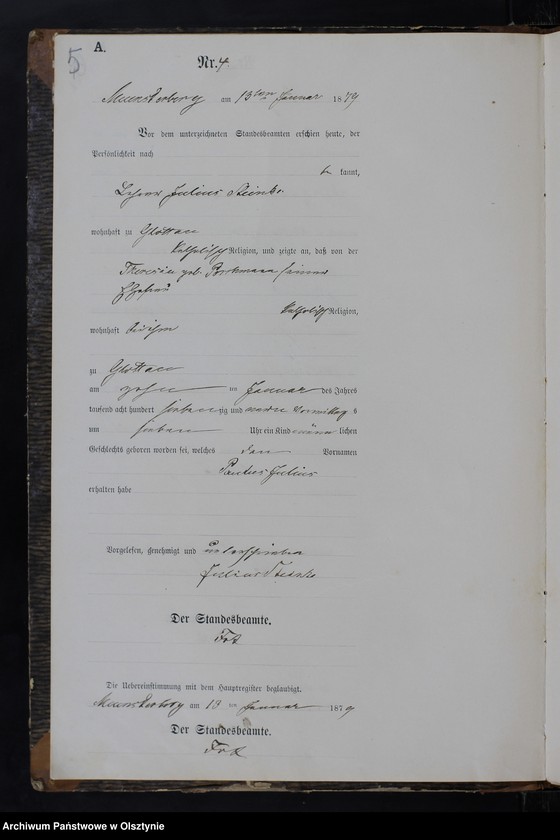 5
A.
Nr. 4.
Muensterberg am 13ten Januar 1879
Vor dem unterzeichneten Standesbeamten erschien heute, der
Persönlichkeit nach
be kannt,
Lehrer Julius
wohnhaft zu Glottau
katholischer Religion, und zeigte an, daß von der
geb. seiner
Ehefrau
katholischer Religion,
wohnhaft bei ihm
zu Glottau
am zehn ten Januar des Jahres
tausend acht hundert sieben zig und neun Vormittags
um sieben Uhr ein Kind männ lichen
Geschlechts geboren worden sei, welches den Vornamen
Paulus Julius
erhalten habe
Vorgelesen, genehmigt und unterschrieben
Julius
Der Standesbeamte.
Die Uebereinstimmung mit dem Hauptregister beglaubigt.
Muensterberg am 13 ten Januar 1879
Der Standesbeamte.
Archiwum Państwowe w Olsztynie